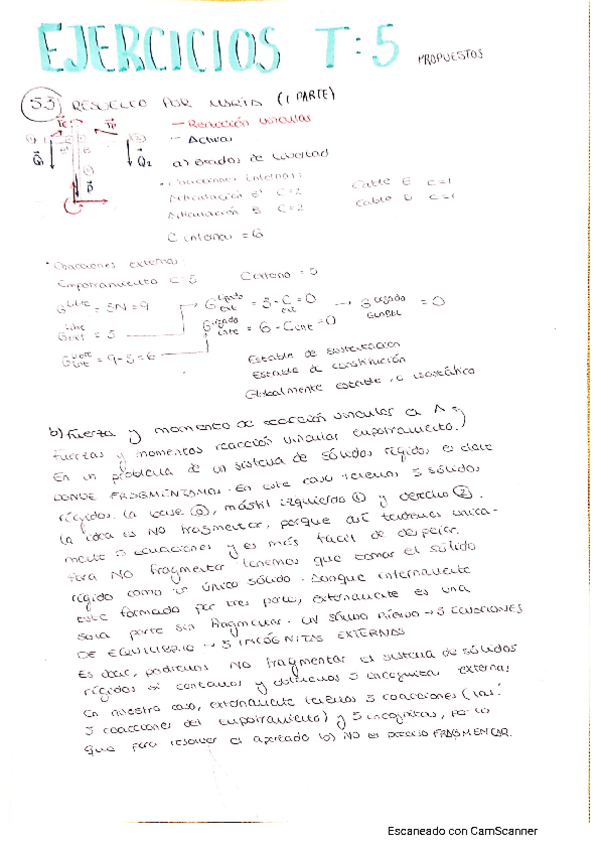 EJERCICIOS T:5 PROPUESTOS
5.3 RESUELTO POR MARÍA (1 PARTE)
- Reacción vincular
- Activas
Q₂
P
a) Grados de libertad
Coacciones internas:
Articulación C=2 Cable E C=1
Articulación B C=2 Cable D C=1
C internas = 6
Coacciones externas:
Empotramiento C=3
= 3N = 9
= 3 - C = 0
= 0
= 3
= 6 - C = 0
= 9-3=6
Estable de sustentación
Estable de constitución
Globalmente estable, isostático
b) Fuerza y momento de reacción vincular en A
Fuerzas y momentos reacción vincular empotramiento.
En un problema de un sistema de sólidos rígidos, es clave
DONDE FRAGMENTAMOS. En este caso tenemos 3 sólidos
rígidos. la base (0), mástil izquierdo (1) y derecho (2).
la idea es NO fragmentar, porque así tendremos única-
mente 3 ecuaciones y es más fácil de despejar.
Para NO fragmentar tenemos que tomar el sólido
rígido como un único sólido. Aunque internamente
este formado por tres partes, externamente es una
sola parte sin fragmentar. UN sólido RÍGIDO → 3 ECUACIONES
DE EQUILIBRIO → 3 INCÓGNITAS EXTERNAS
Es decir, podremos NO fragmentar el sistema de sólidos
rígidos si contamos y obtenemos 3 incógnitas externas
En nuestro caso, externamente tenemos 3 coacciones (las
3 reacciones del empotramiento) y 3 incógnitas, por lo
que para resolver el apartado b) NO es preciso FRAGMENTAR.
Escaneado con CamScanner